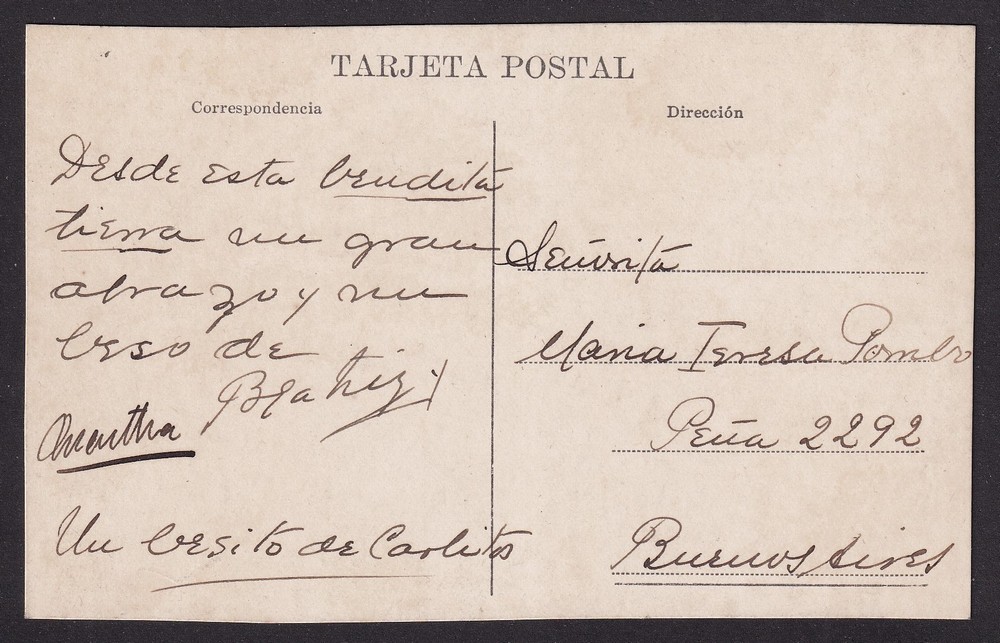 TARJETA POSTAL
Correspondencia
Dirección
Desde esta bendita
tierra un gran
abrazo y un
beso de
Beatriz y
Martha
Un besito de Carlitos
Señorita
Maria Teresa Pombo
Peña 2292
Buenos Aires